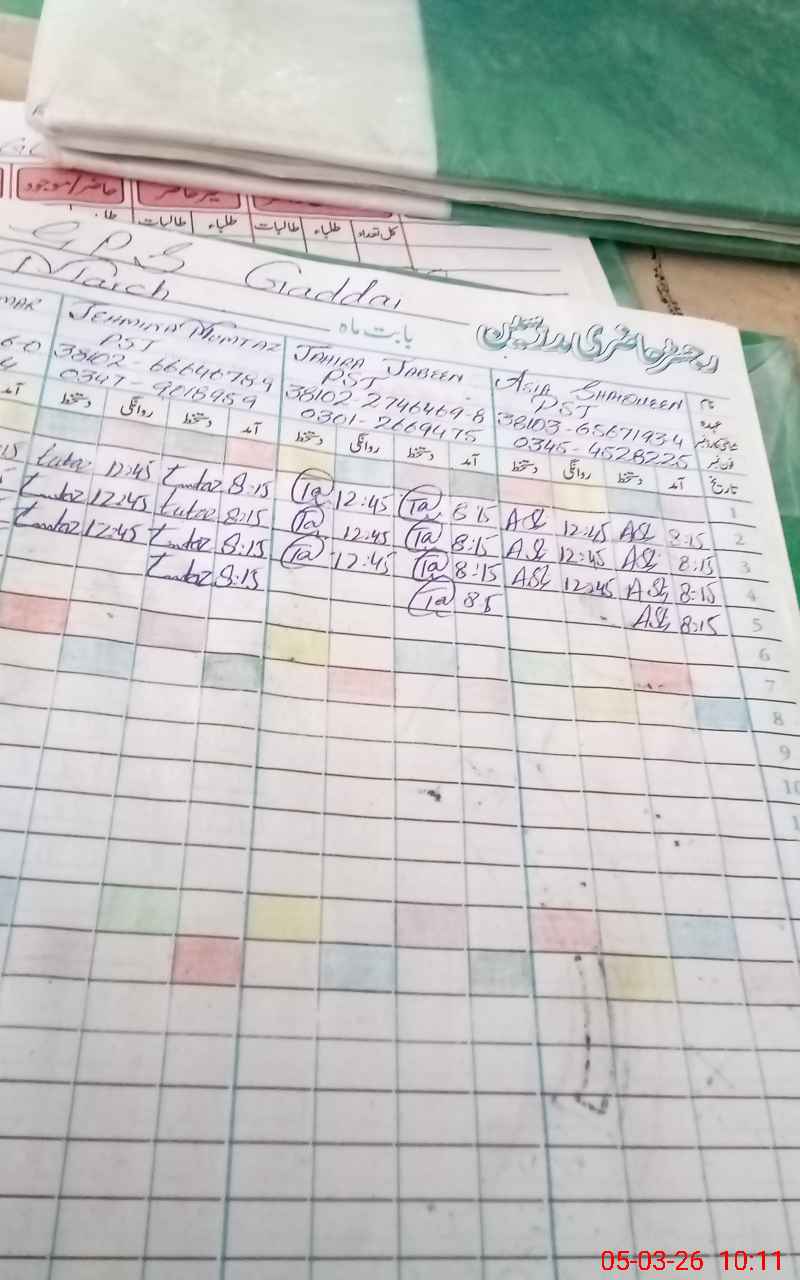 حاضر/موجود غیر حاضر
طالبات طلباء طالبات طلباء کل تعداد
G.P.S Gaddai
March بابت ماہ
JEHMINA MUMTAZ
PST
38102-6664678-9
0347-9018959
آمد دستخط روانگی دستخط
TAHRA JABEEN
PST
38102-2746469-8
0301-2669475
آمد دستخط روانگی دستخط
ASIA SHAHEEN
PST
38103-6567193-4
0345-4528225
آمد دستخط روانگی دستخط
نام
عہدہ
تاریخ
1
2 8:15 ASh 12:45 ASh 8:15 Ta 12:45 Ta 8:15 12:45
3 8:15 ASh 12:45 ASh 8:15 Ta 12:45 Ta 8:15 12:45
4 8:15 ASh 12:45 ASh 8:15 Ta 12:45 Ta 8:15 12:45
5 8:15 ASh 8:15 Ta 8:15
6
7
8
9
10
05-03-26 10:11